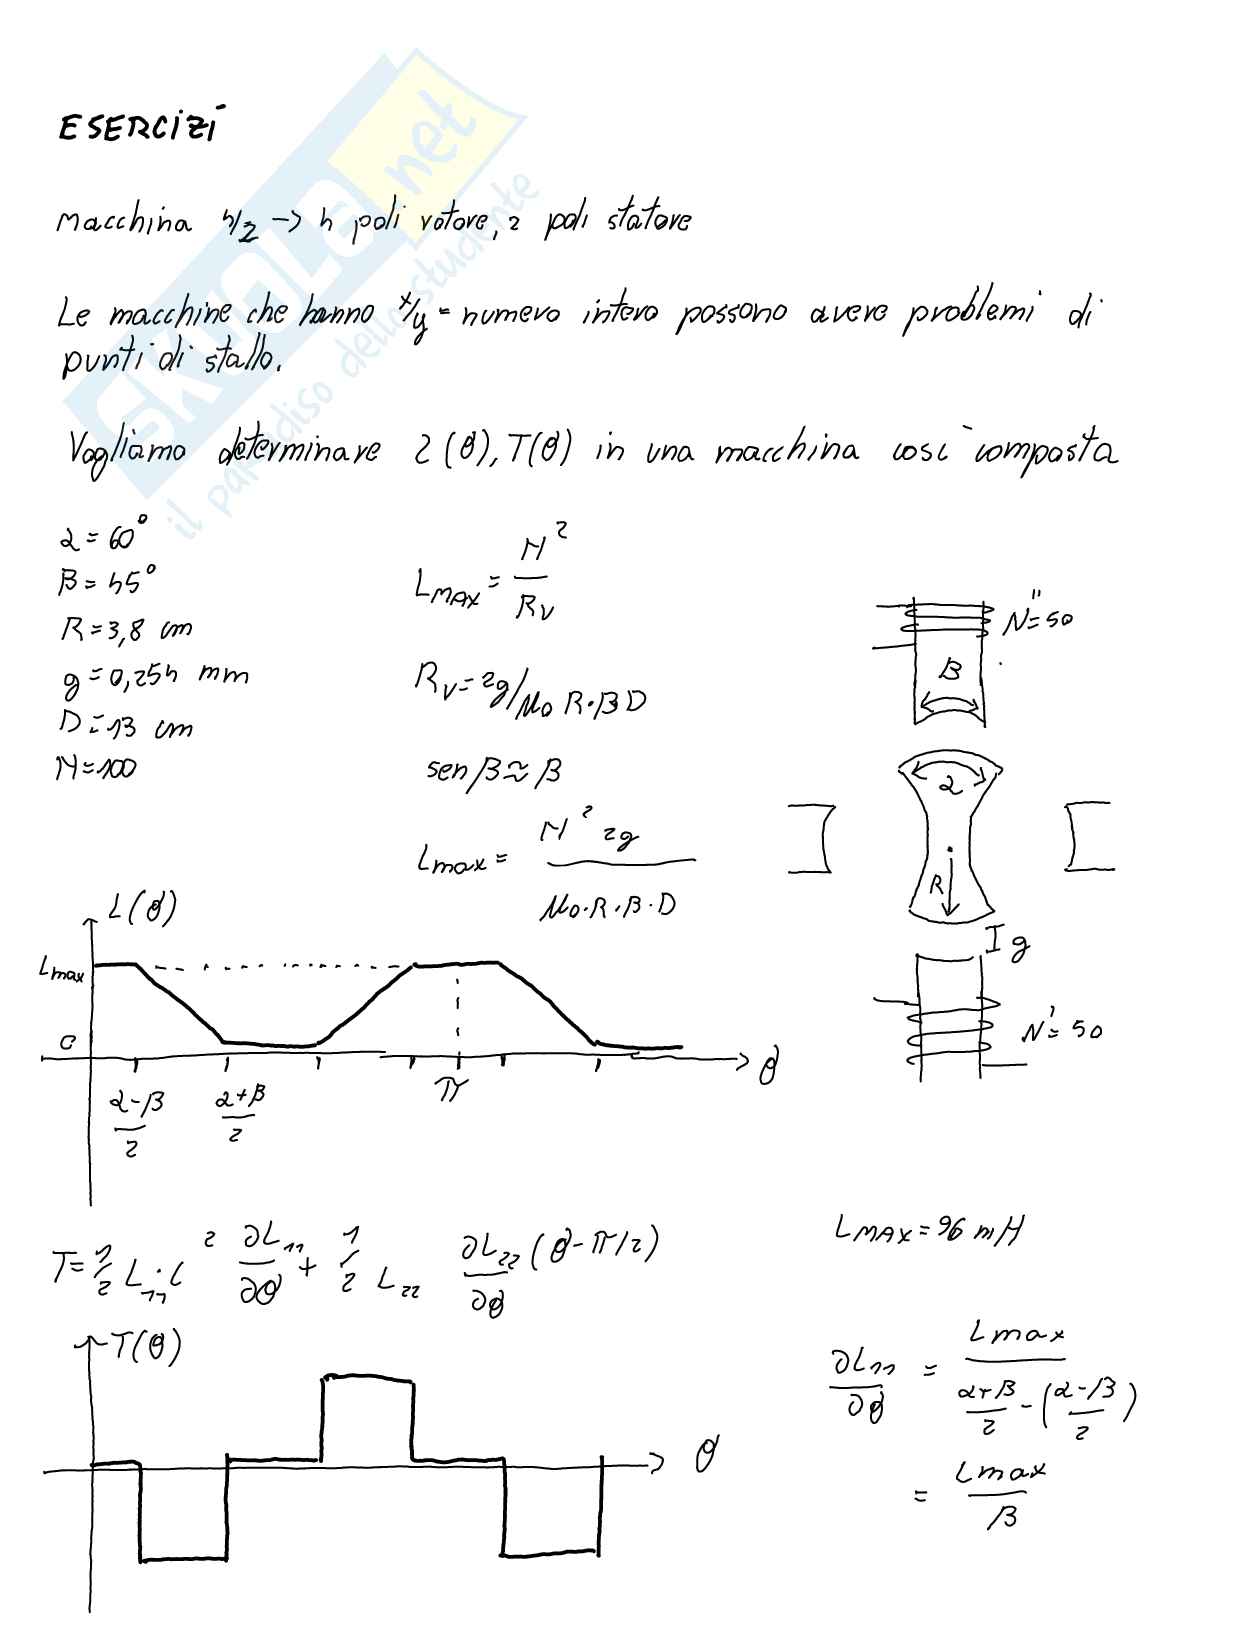 ESERCIZI
macchina 4/2 -> 4 poli rotore, 2 poli statore
Le macchine che hanno x/y = numero intero possono avere problemi di
punti di stallo.
Vogliamo determinare L(θ), T(θ) in una macchina così composta
α = 60°
β = 45°
R = 3,8 cm
g = 0,254 mm
D = 13 cm
N = 100
Lmax = N² / Rv
Rv = 2g/μ0 R·β D
sen β ≈ β
Lmax = N² 2g / μ0·R·β·D
N'' = 50
β
α
R
g
N' = 50
L(θ)
Lmax
0
α-β/2
α+β/2
π
θ
T = 1/2 L11·i² ∂L11/∂θ + 1/2 L22 ∂L22/∂θ (θ-π/2)
LMAX = 96 mH
T(θ)
θ
∂L11/∂θ = Lmax / α+β/2 - (α-β/2)
= Lmax / β
SKUOLA.net
il paradiso dello studente